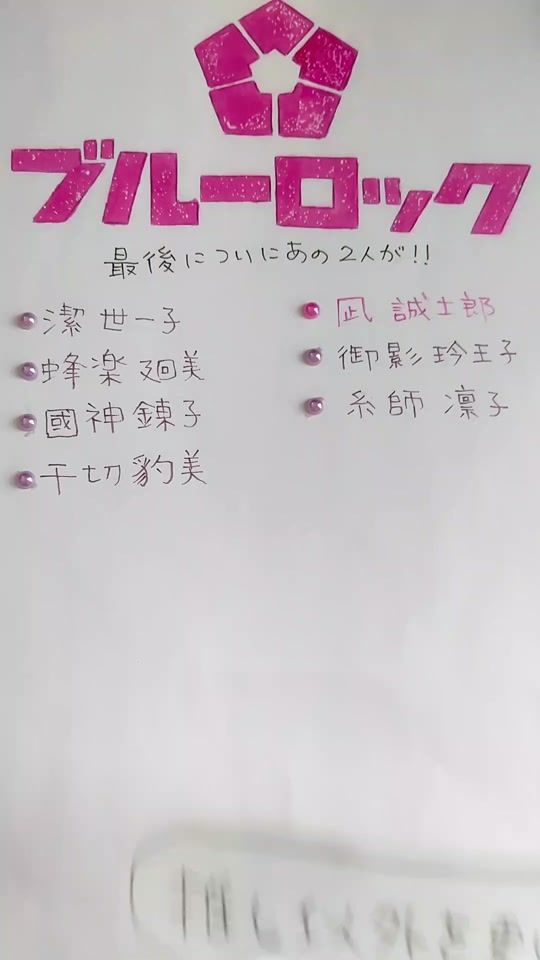 ブルーロック
最後についにあの2人が!!
潔 世一子
蜂楽 廻美
國神 錬子
千切 豹美
凪 誠士郎
御影 玲王子
糸師 凛子